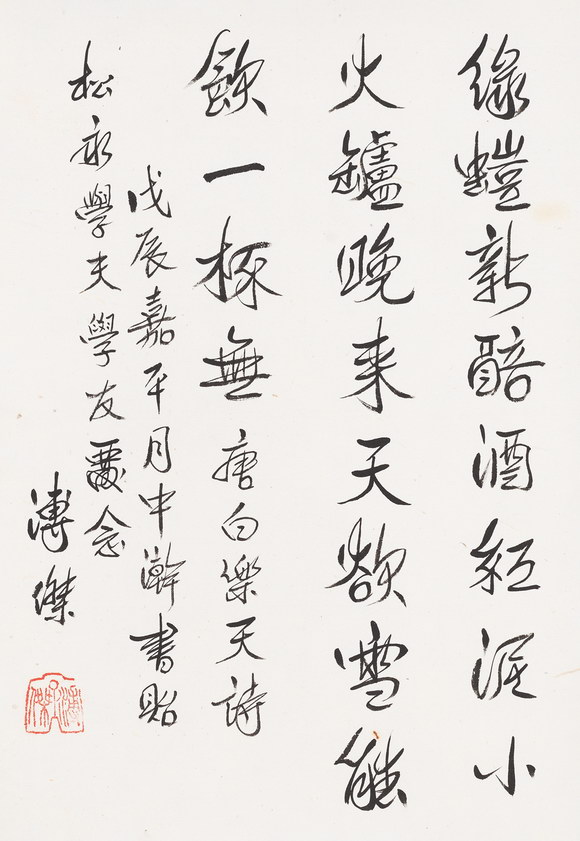 綠螘新醅酒紅泥小
火罏晚来天欲雪能
飲一杯無 唐白樂天詩
戊辰嘉平月中澣書貽
松永學夫學友念
溥傑
溥傑